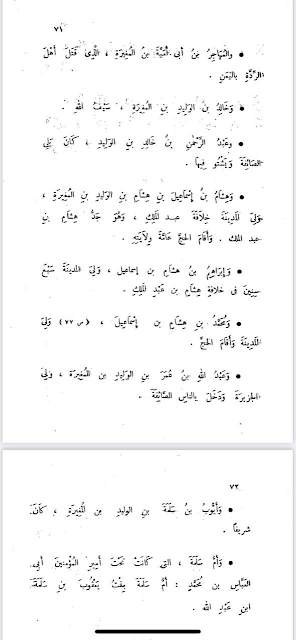 ٧١
• والمُهَاجِرُ بنُ أبى أُمَيَّةَ بنِ المُغِيرَةِ ، الَّذِى قَتَلَ أَهْلَ
الرِّدَّةِ باليَمَنِ .
• وَخَالِدُ بنُ الوَلِيدِ بنِ المُغِيرَةِ ، سَيْفُ اللهِ .
• وعَبْدُ الرَّحْمٰنِ بنُ خَالِدِ بنِ الوَلِيدِ ، كَانَ يَلِي
الصَّائِفَةَ وَيَشْتُو فِيهَا .
• وَهِشَامُ بنُ إِسْمَاعِيلَ بنِ هِشَامِ بنِ الوَلِيدِ بنِ المُغِيرَةِ ،
وَلِيَ المَدِينَةَ خِلَافَةَ عبدِ المَلِكِ ، وَهُوَ جَدُّ هِشَامِ بنِ
عبد الملك . وَأَقَامَ الحَجَّ عَامَّةَ ولَايَتِهِ .
• وَإِبْرَاهِيمُ بنُ هِشَامِ بن إسماعيل ، وَلِيَ المدينَةَ سَبْعَ
سِنِينَ فى خلافةِ هِشَامِ بن عَبْدِ المَلِكِ .
• وَمُحَمَّدُ بنُ هِشَامِ بن إِسْمَاعِيلَ ، (ص ٧٧) وَلِيَ
المَدِينَةَ وَأَقَامَ الحَجَّ .
• وَعَبْدُ اللهِ بنُ عُمَرَ بنِ الوَلِيدِ بن المُغِيرَة ، وَلِيَ
الجزيرةَ وَدَخَلَ بالناسِ الصَّائِفَةَ .
٧٢
• وَأَيُّوبُ بنُ سَلَمَةَ بنِ الوليدِ بن المُغِيرةِ ، كَانَ
شريفاً .
• وَأُمُّ سَلَمَةَ ، التى كَانَتْ تَحْتَ أَمِيرِ المُؤْمِنينَ أبى
العَبَّاسِ بن مُحَمَّدٍ : أُمُّ سَلَمَةَ بِنْتُ يَعْقُوبَ بنِ سَلَمَةَ
ابنِ عَبْدِ الله .